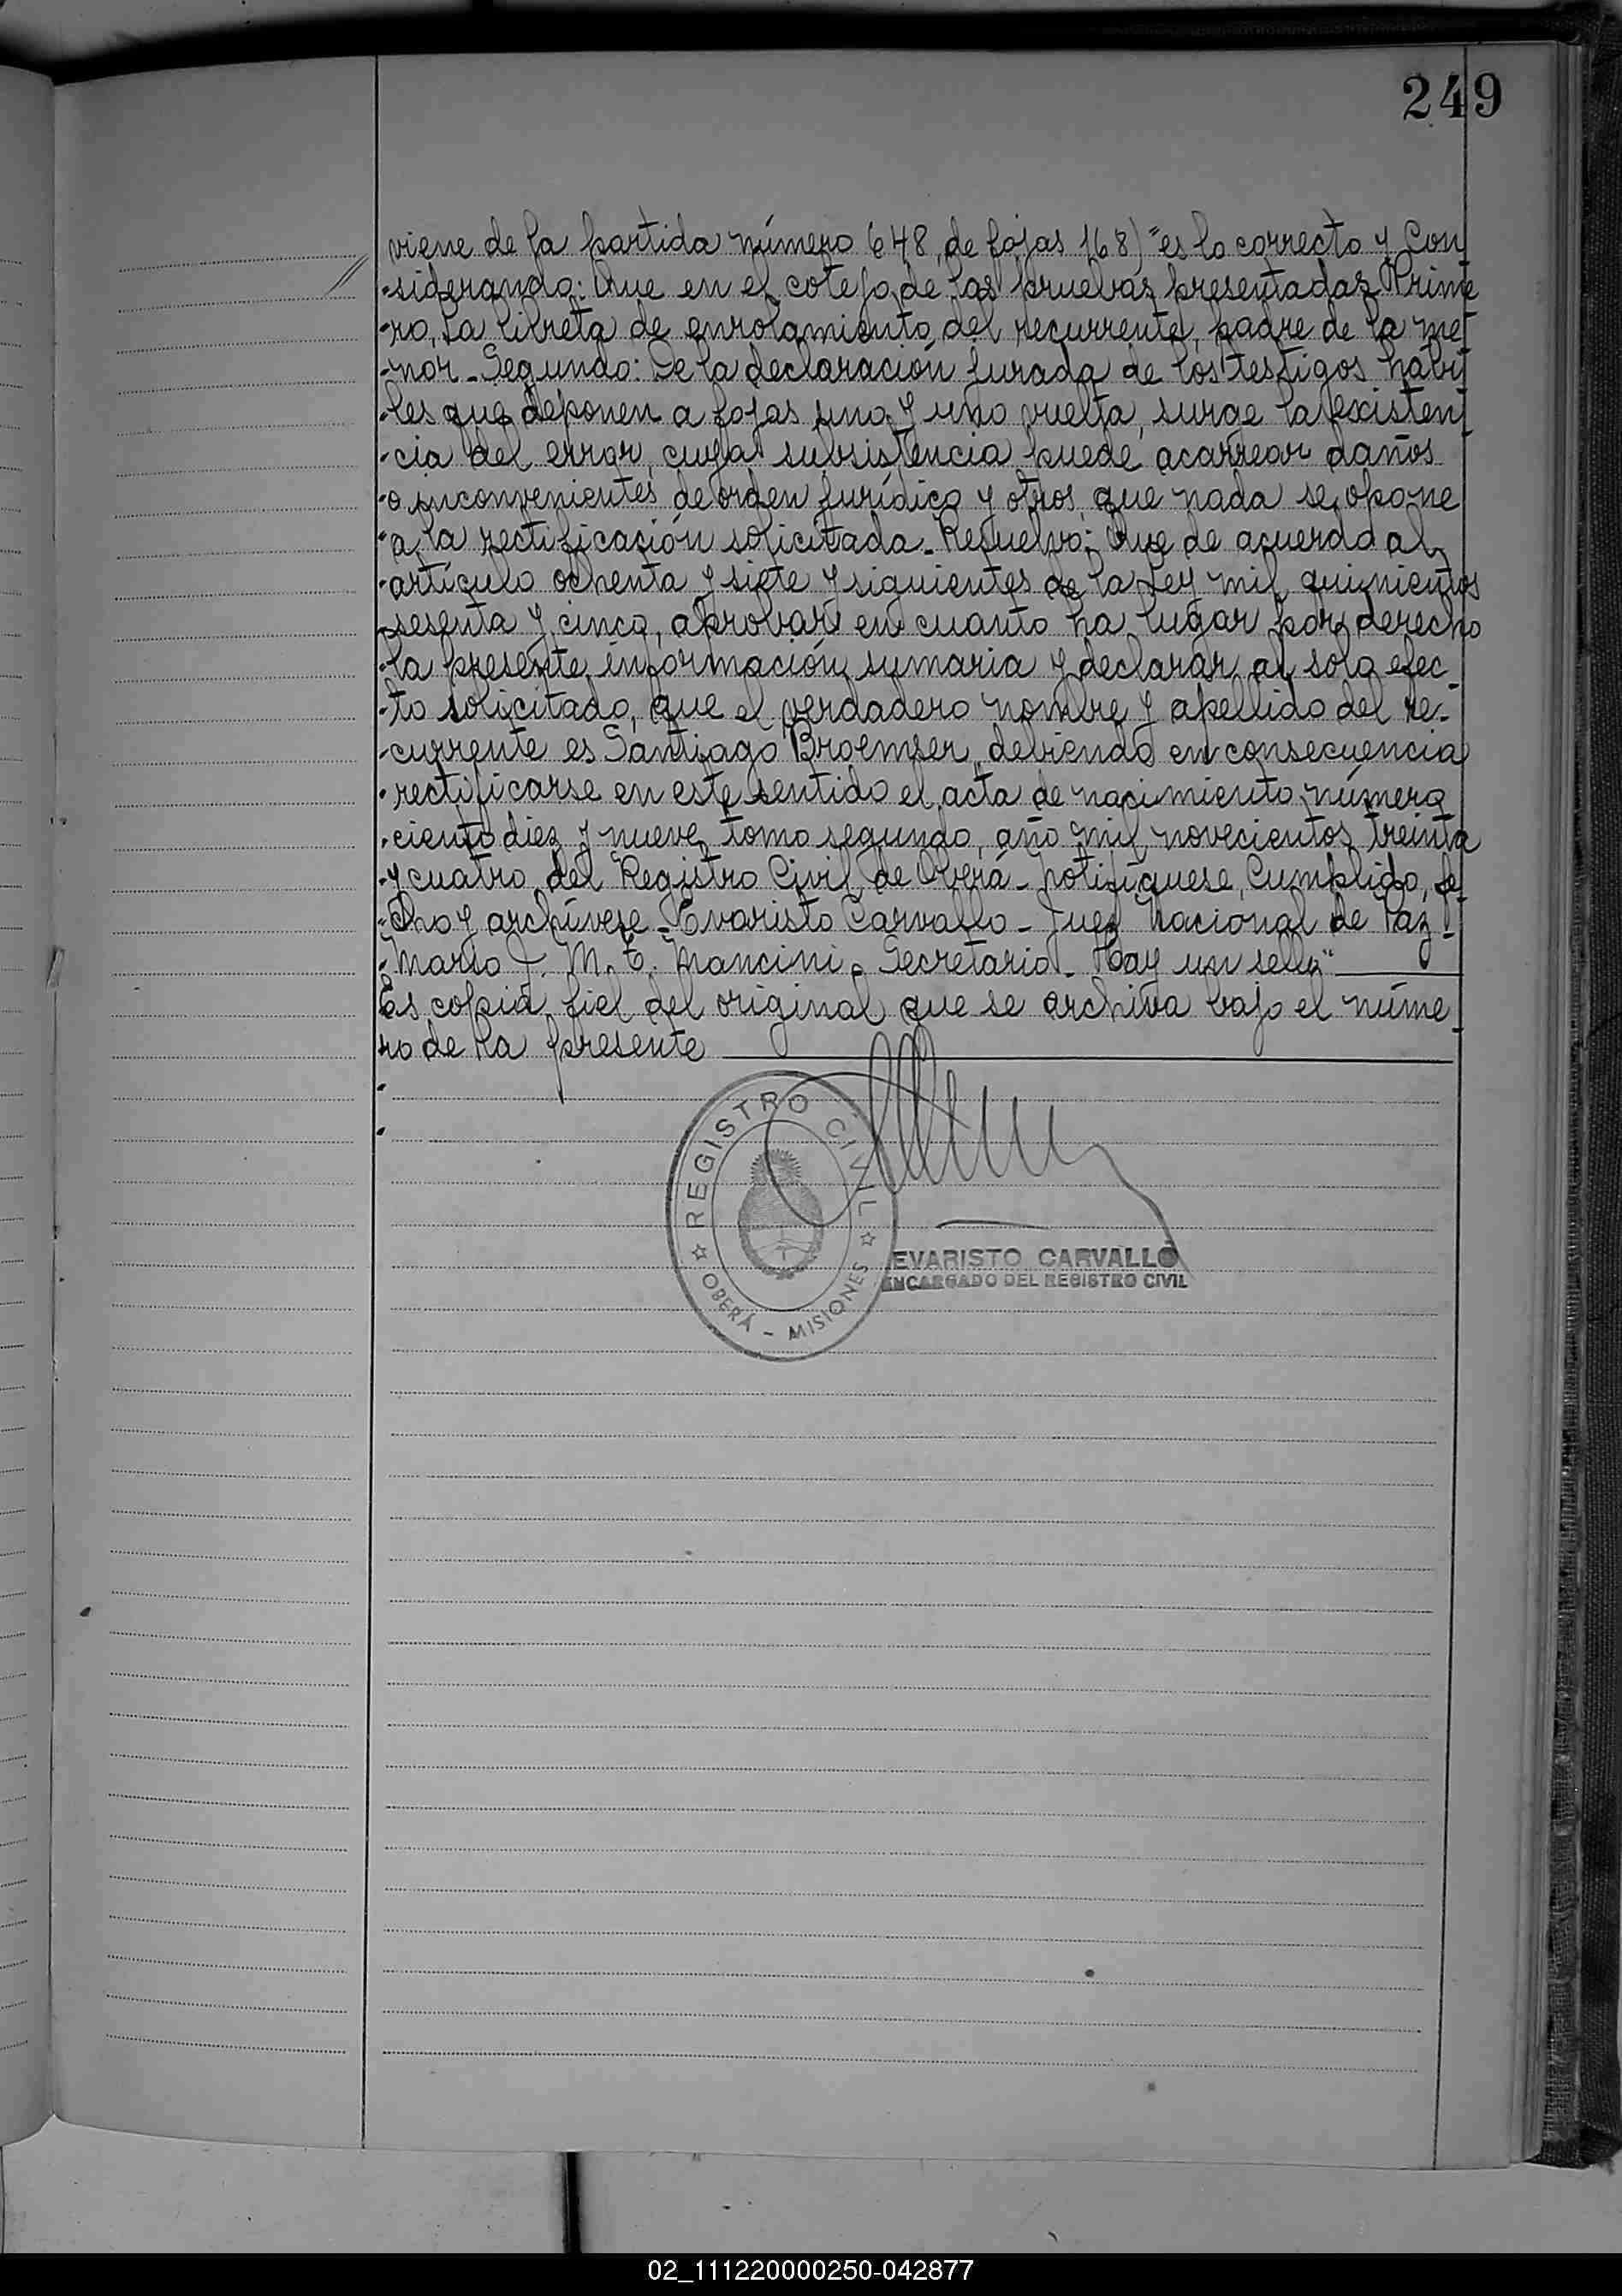 249
viene de la partida número 648, de fojas 168) "es lo correcto y Con
siderando: Que en el cotejo de las pruebas presentadas Prime
ro, La libreta de enrolamiento del recurrente, padre de la me
nor_Segundo: De la declaración jurada de los testigos hábi
les que deponen a fojas uno y uno vuelta, surge la existen
cia del error, cuya subsistencia puede acarrear daños
o inconvenientes de orden jurídico y otros, que nada se opone
a la rectificación solicitada_Resuelvo: Que de acuerdo al
artículo ochenta y siete y siguientes de la Ley mil quinientos
sesenta y cinco, aprobar en cuanto ha lugar por derecho
la presente información sumaria y declarar al solo efec_
to solicitado, que el verdadero nombre y apellido del re_
currente es Santiago Broemser, debiendo en consecuencia
rectificarse en este sentido el acta de nacimiento número
ciento diez y nueve, tomo segundo, año mil novecientos treinta
y cuatro del Registro Civil de Oberá_Notifíquese, Cumplido, fe
cho y archívese_Evaristo Carvallo_Juez Nacional de Paz_
Mario J. M. E. Mancini_Secretario_Hay un sello"
Es copia fiel del original que se archiva bajo el núme_
ro de la presente
REGISTRO CIVIL
OBERÁ - MISIONES
EVARISTO CARVALLO
ENCARGADO DEL REGISTRO CIVIL
02_111220000250-042877